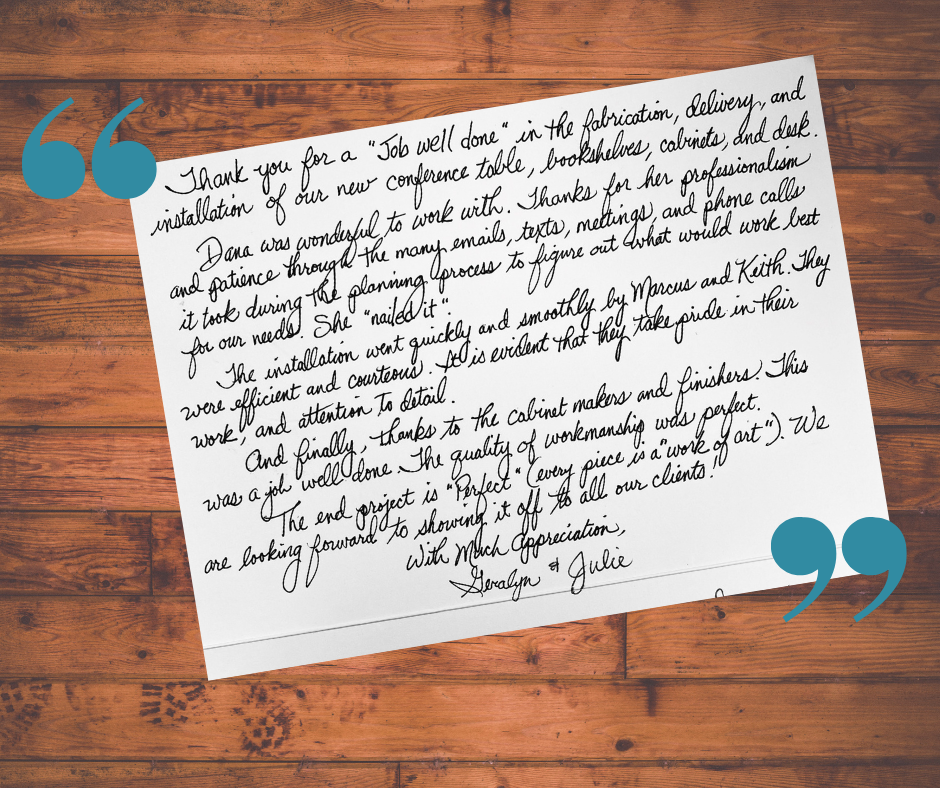 Thank you for a "Job well done" in the fabrication, delivery, and
installation of our new conference table, bookshelves, cabinets, and desk.
Dana was wonderful to work with. Thanks for her professionalism
and patience through the many emails, texts, meetings, and phone calls
it took during the planning process to figure out what would work best
for our needs. She "nailed it".
The installation went quickly and smoothly by Marcus and Keith. They
were efficient and courteous. It is evident that they take pride in their
work, and attention to detail.
And finally, thanks to the cabinet makers and finishers. This
was a job well done. The quality of workmanship was perfect.
The end project is "Perfect" (every piece is a "work of art"). We
are looking forward to showing it off to all our clients!
With Much Appreciation,
Geralyn & Julie